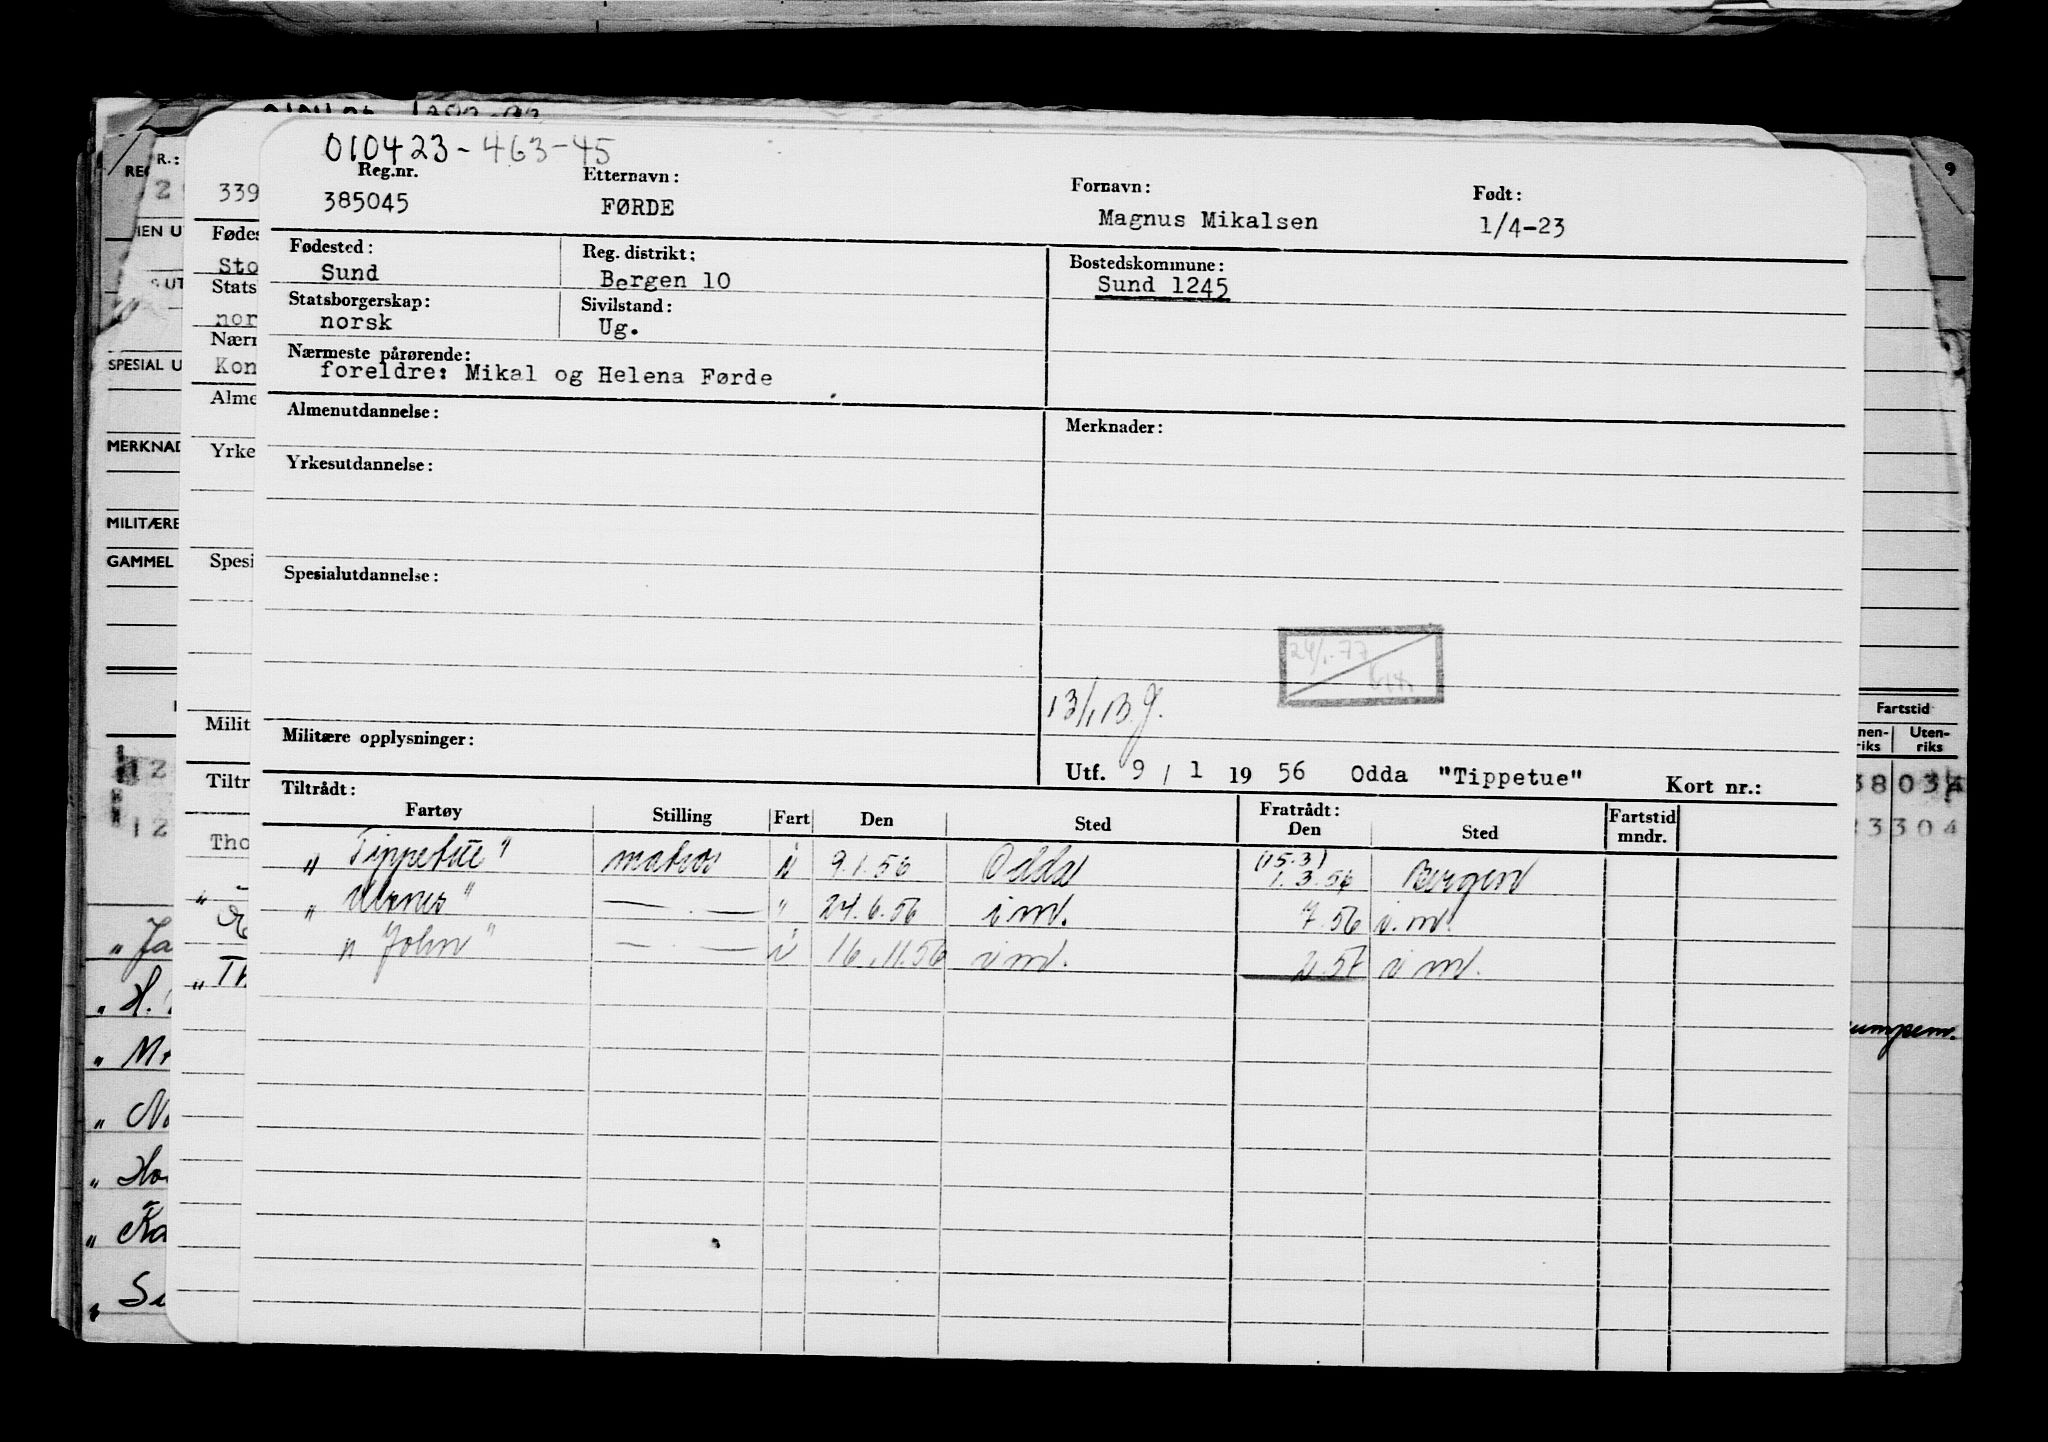 010423-463-45
Reg.nr. Etternavn: Fornavn: Født:
385045 FØRDE Magnus Mikalsen 1/4-23
Fødested: Reg. distrikt: Bostedskommune:
Sund Bergen 10 Sund 1245
Statsborgerskap: Sivilstand:
norsk Ug.
Nærmeste pårørende:
foreldre: Mikal og Helena Førde
Almenutdannelse: Merknader:
Yrkesutdannelse:
Spesialutdannelse:
24/1-77
13/1 B.J.
Militære opplysninger:
Utf. 9 / 1 19 56 Odda "Tippetue" Kort nr.:
Tiltrådt: Fratrådt: Fartstid
Fartøy Stilling Fart Den Sted Den Sted mndr.
(15.3)
"Tippetue" matros i 9.1.56 Odda 1.3.56 Bergen
"Urnes" — . — " 24.6.56 i m. 7.56 i m.
"John" — . — i 16.11.56 i m. 2.57 i m.
R.:
339
Fødes
Sto
Stats
nor
Nærm
Kon
Alme
Yrke
Spesi
Milit
Tiltr
Tho
SPESIAL U
MERKNAD
MILITÆRE
GAMMEL
"Ja
"H.
"Ho
"Ka
9
Fartstid
nen-riks Uten-riks
38 03
23 304
umpem.